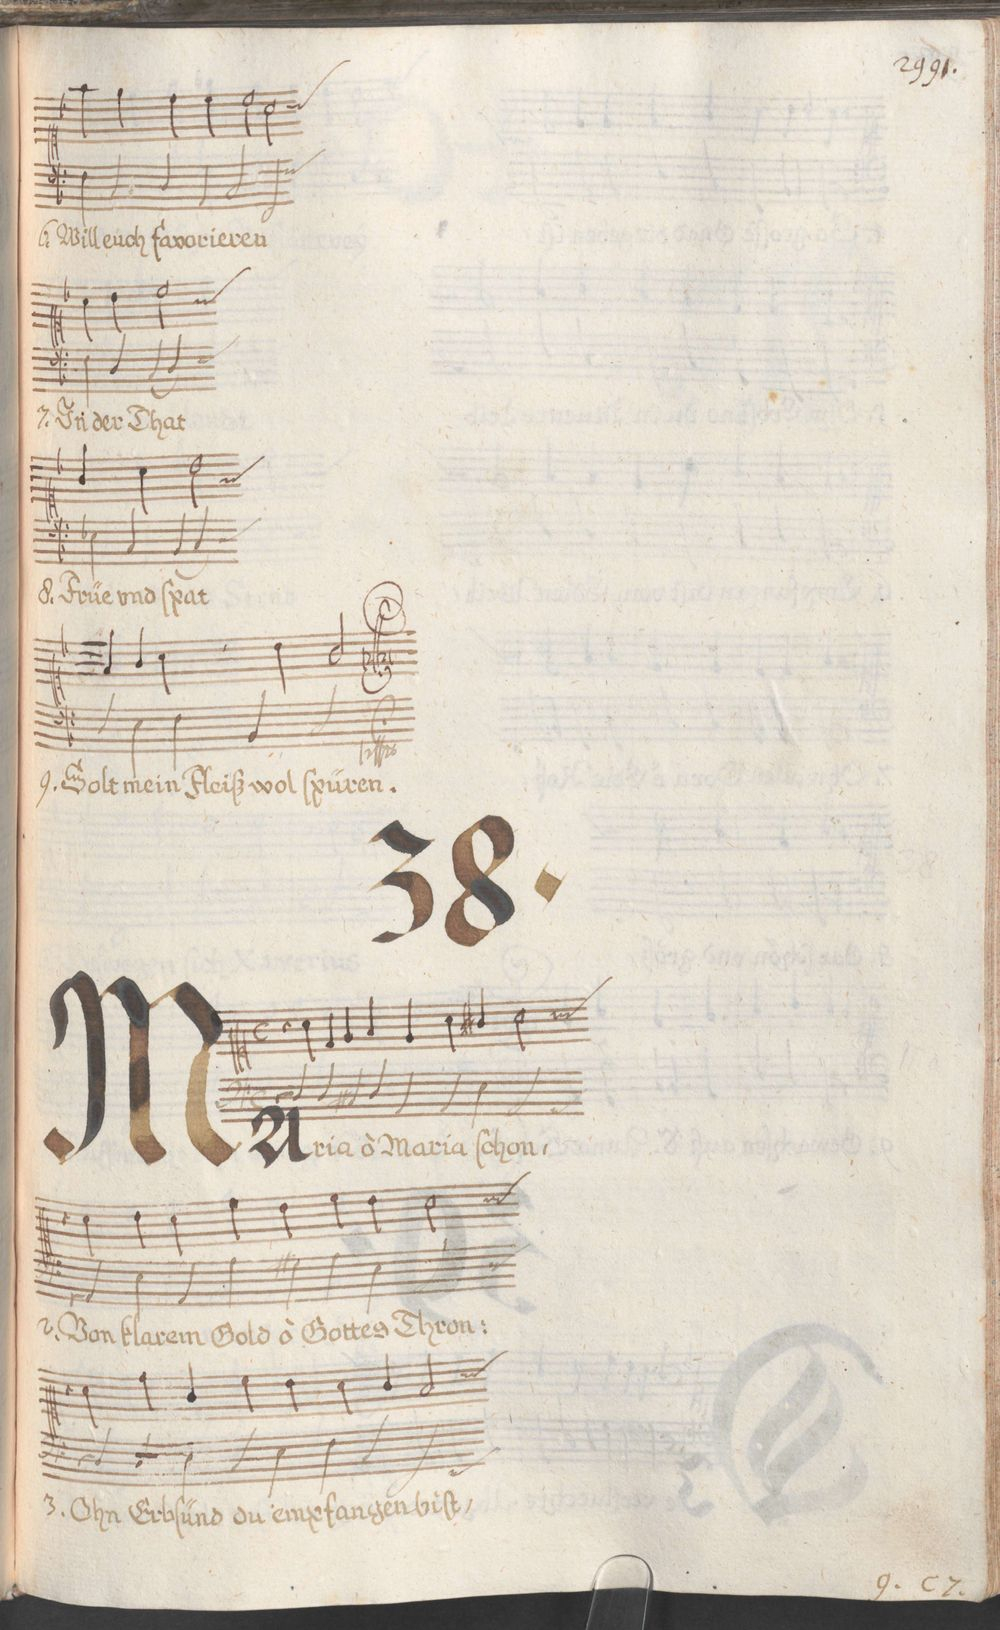 2991.
6. Will euch favorieren
7. In der That
8. Früe vnd spat
9. Wolt mein Fleiß wol spüren.
38.
MAria ô Maria schon,
2. Von klarem Gold ô Gottes Thron:
3. Ohn Erbsünd du empfangen bist,
9. C 7.